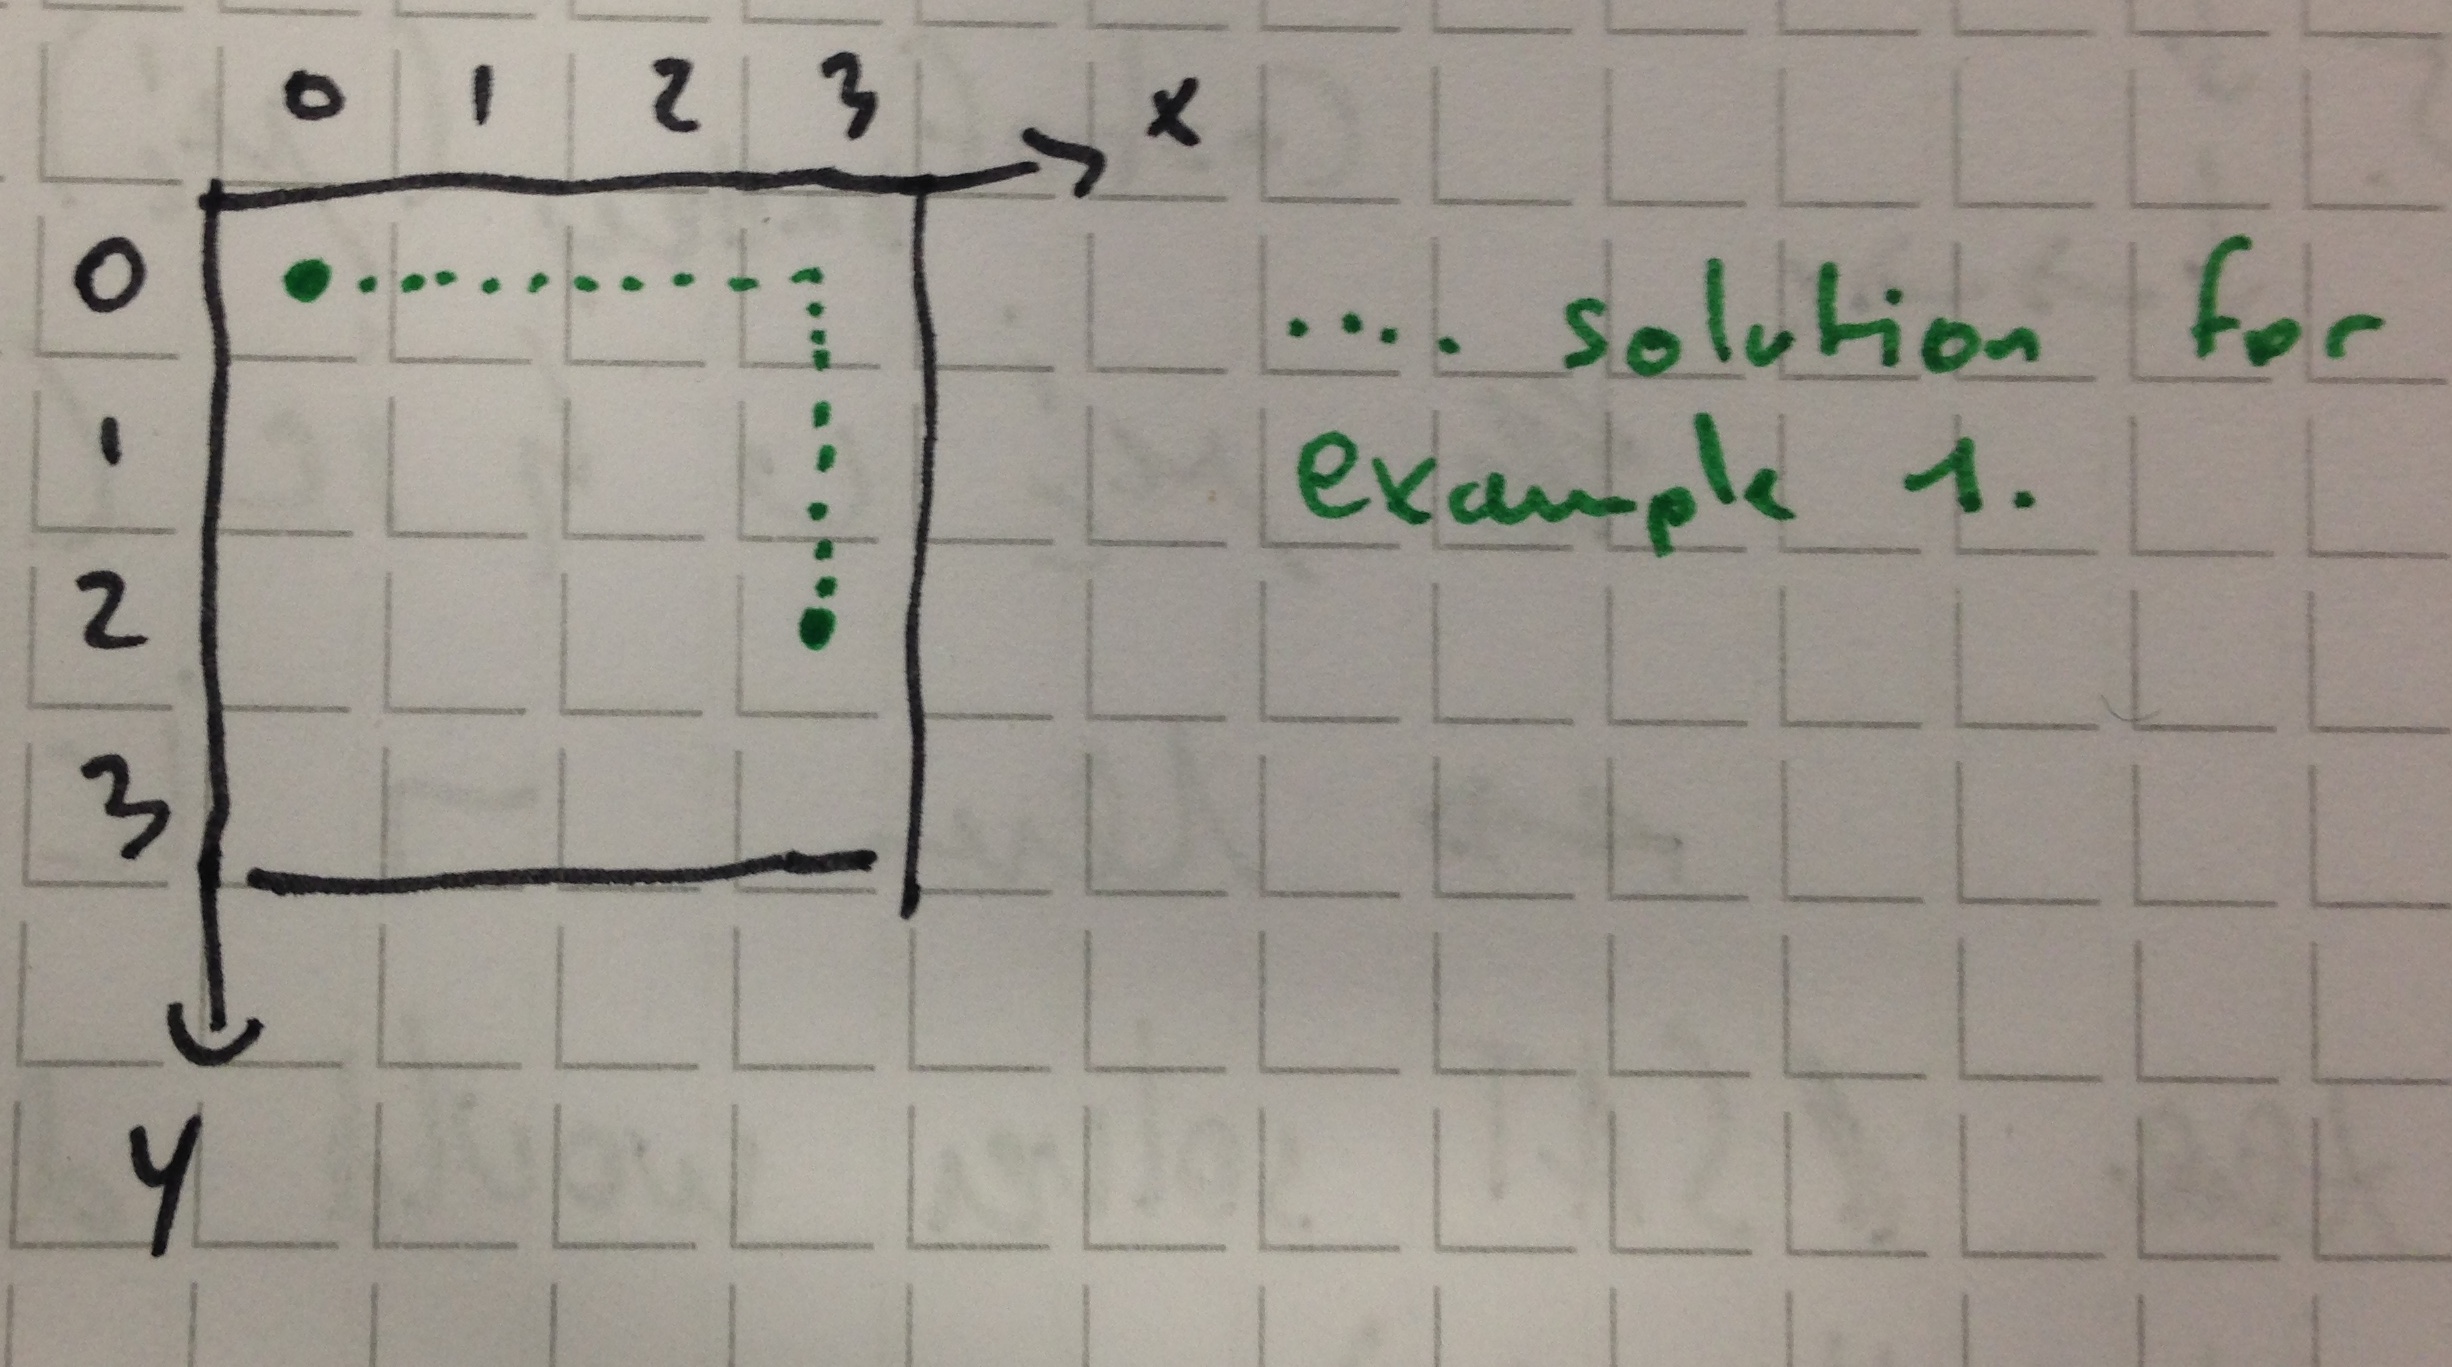 0 1 2 3 x
0
1
2
3
y
.... solution for
example 1.